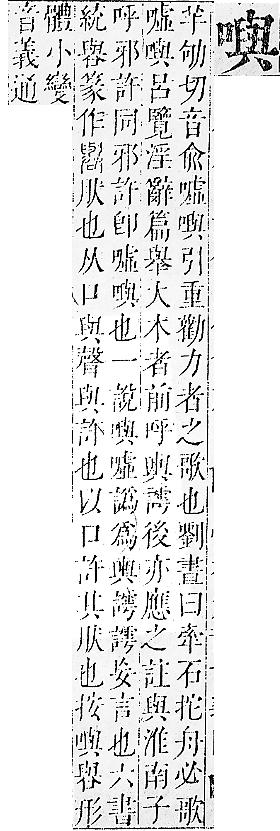 㖵
羊劬切音兪噓㖵引重勸力者之歌也劉晝曰牽石拕舟必歌
噓㖵呂覽淫辭篇舉大木者前呼輿謣後亦應之註輿淮南子
呼邪許同邪許卽噓㖵也一說㖵噓譌爲輿謣謣妄言也六書
統舉篆作𦦙㕤也从口與聲與許也以口許其㕤也按㖵舉形
體小變
音義通